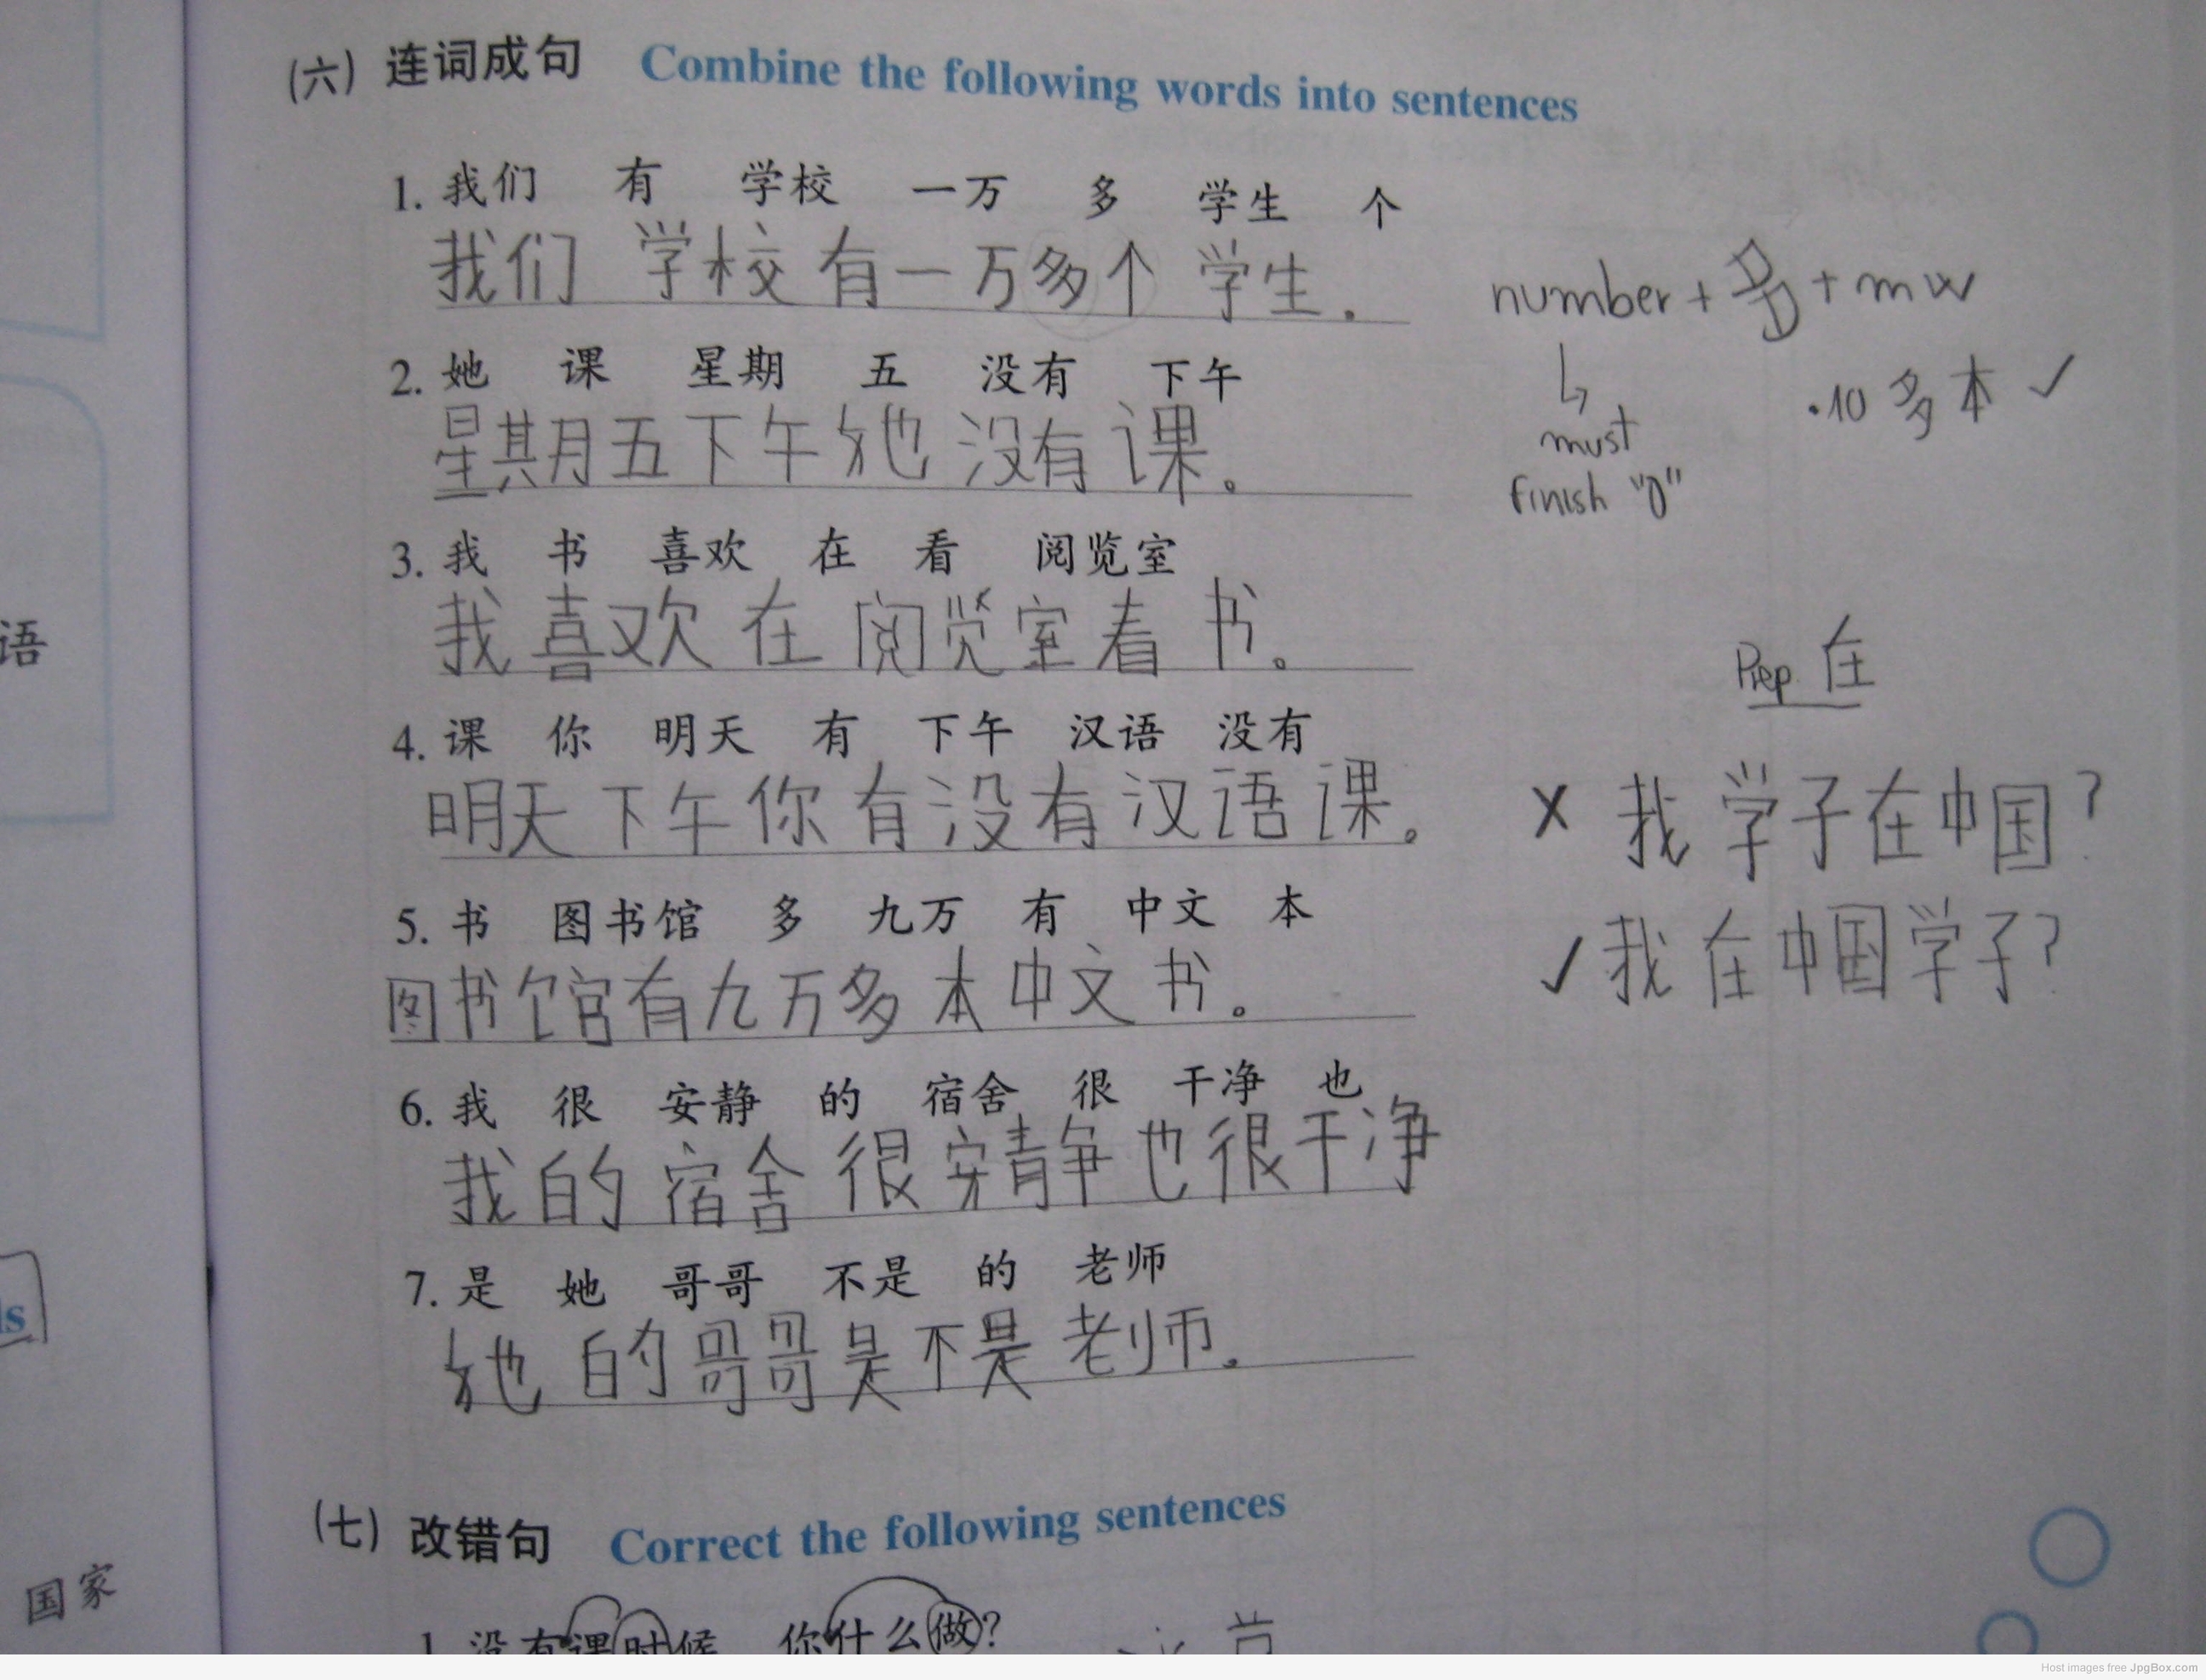 (六) 连词成句 Combine the following words into sentences
1. 我们 有 学校 一万 多 学生 个
我们 学校有一万多个 学生.
number + 多 + mw
2. 她 课 星期 五 没有 下午
·10 多本 ✓
星期五下午她没有课。
↳ must
finish "0"
3. 我 书 喜欢 在 看 阅览室
我喜欢在阅览室看书。
Prep 在
4. 课 你 明天 有 下午 汉语 没有
明天下午你有没有汉语课。
X 我学子在中国?
5. 书 图书馆 多 九万 有 中文 本
✓ 我在中国学子?
图书馆有九万多本中文书。
6. 我 很 安静 的 宿舍 很 干净 也
我的宿舍很安静也很干净
7. 是 她 哥哥 不是 的 老师
她的哥哥是不是老师.
(七) 改错句 Correct the following sentences
1. 没有课时候 你什么做?
语
s
国家
Host images free JpgBox.com